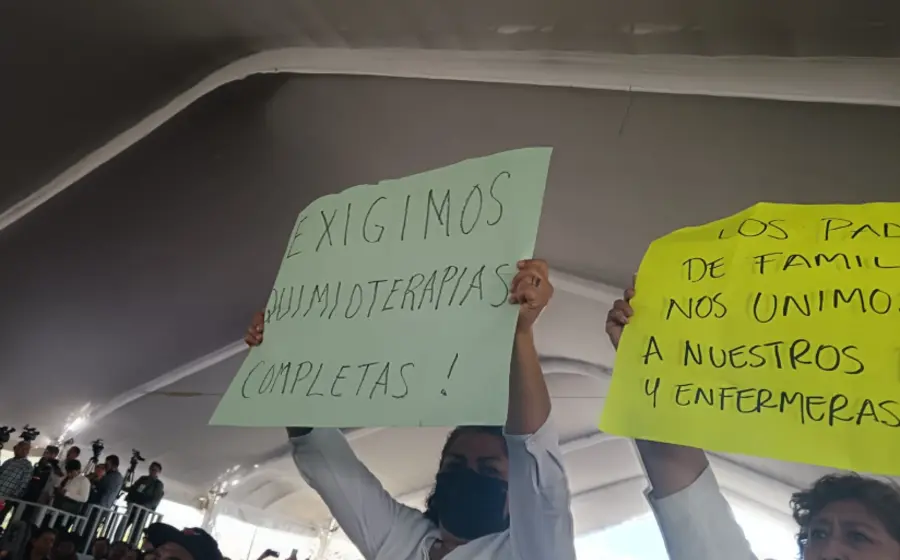 EXIGIMOS
QUIMIOTERAPIAS
COMPLETAS !
LOS PAD
DE FAMIL
NOS UNIMO
A NUESTROS
Y ENFERMERAS